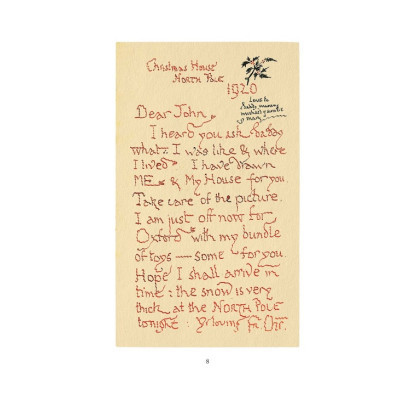 Christmas House
NORTH POLE
1920
Love to
daddy, mummy
michael & auntie
mary
Dear John,
I heard you ask daddy
what I was like & where
I lived. I have drawn
ME & My House for you.
Take care of the picture.
I am just off now for
Oxford with my bundle
of toys — some for you.
Hope I shall arrive in
time: the snow is very
thick at the NORTH POLE
tonight: Yr loving Fr. Chr.
6